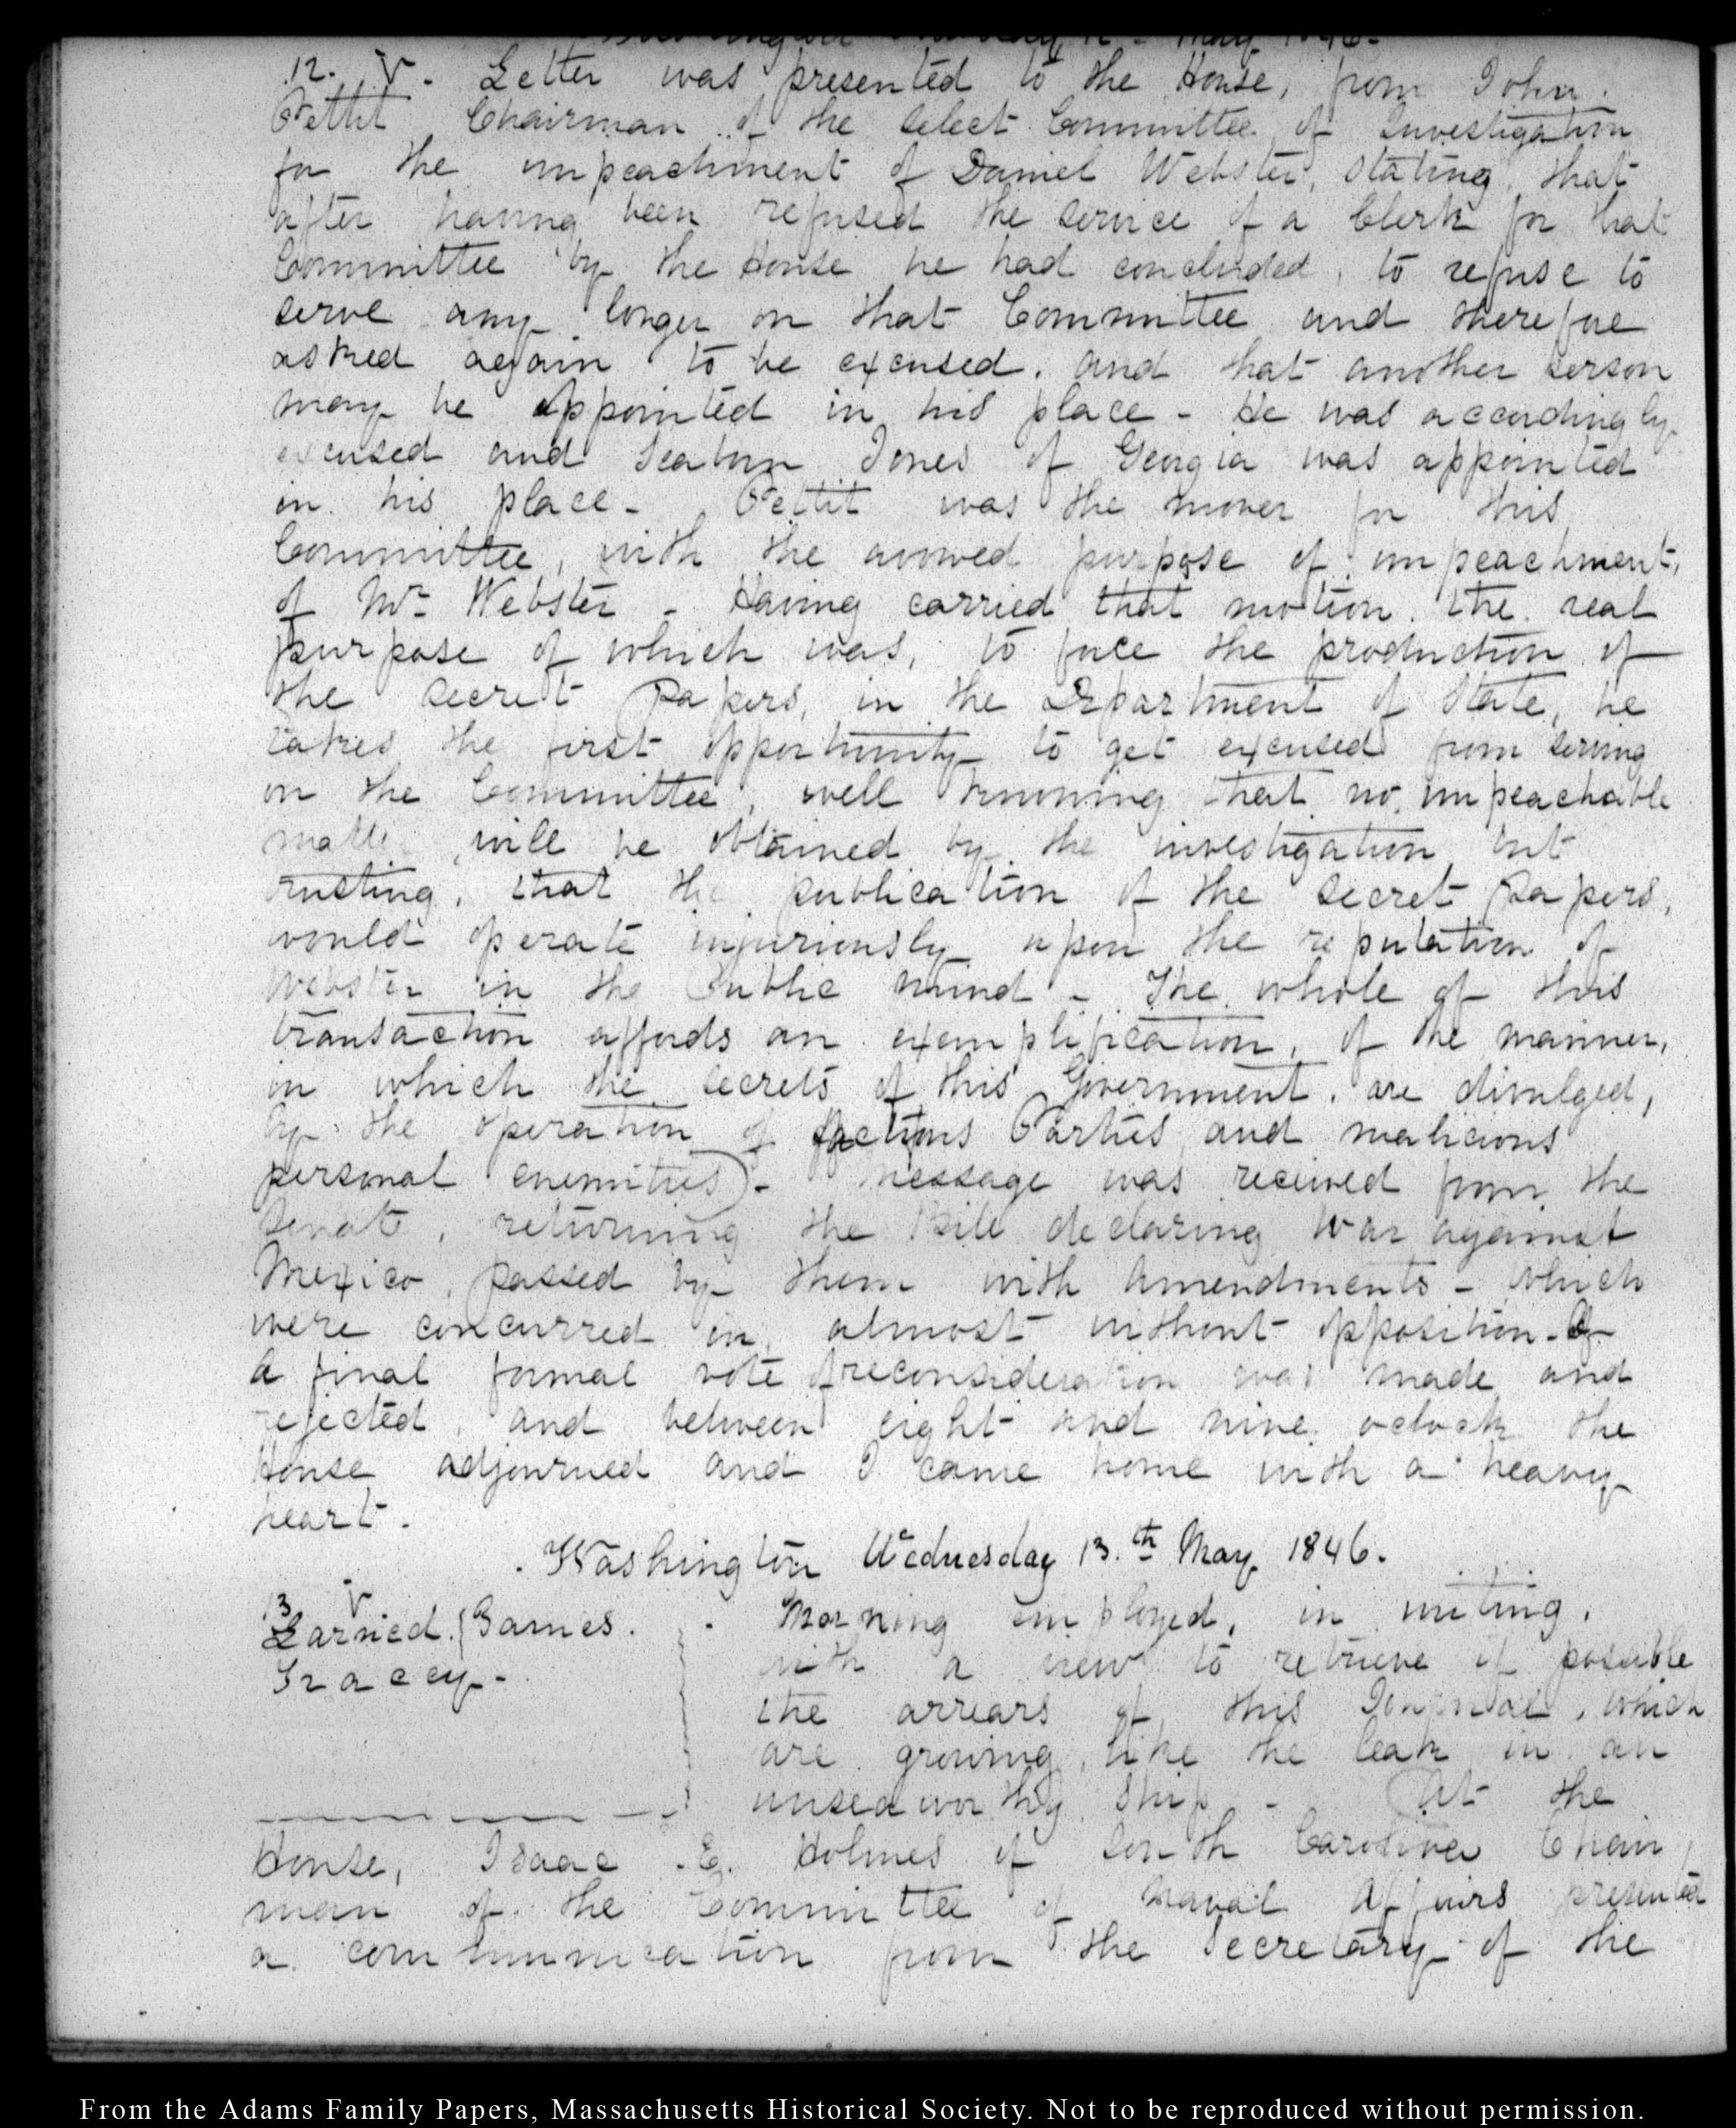 May 1846.
12. V. Letter was presented to the House, from John.
Pettit Chairman of the select Committee of Investigation
for the impeachment of Daniel Webster, stating, that
after having been refused the service of a Clerk for that
Committee by the House he had concluded, to refuse to
serve any longer on that Committee and therefore
asked again to be excused. and that another person
may be appointed in his place - He was accordingly
excused and Seaborn Jones of Georgia was appointed
in his place - Pettit was the mover for this
Committee, with the avowed purpose of impeachment,
of Mr. Webster - Having carried that motion. the real
purpose of which was, to force the production of
the secret Papers, in the Department of State, he
takes the first opportunity to get excused from serving
on the Committee, well knowing that no impeachable
matter will be obtained by the investigation but
trusting, that the publication of the secret Papers,
would operate injuriously upon the reputation of
Webster in the Public mind - The whole of this
transaction affords an exemplification, of the manner,
in which the secrets of this Government. are divulged,
by the operation of factious Parties and malicious
personal enemities) - Message was received from the
Senate, returning the Bill declaring War against
Mexico, passed by them with Amendments - which
were concurred in, almost without opposition -
A final formal vote of reconsideration was made and
rejected, and between eight and nine oclock the
House adjourned and I came home with a heavy
heart.
Washington Wednesday 13.th May 1846.
13 V
Larned. {Barnes. Morning employed, in writing,
Tracey - with a view to retrieve if possible
the arrears of this Journal, which
are growing, like the leak in an
unseaworthy ship - At the
House, Isaac E. Holmes of South Carolina Chair,
man of the Committee of Naval Affairs presented
a communication from the Secretary of the
From the Adams Family Papers, Massachusetts Historical Society. Not to be reproduced without permission.